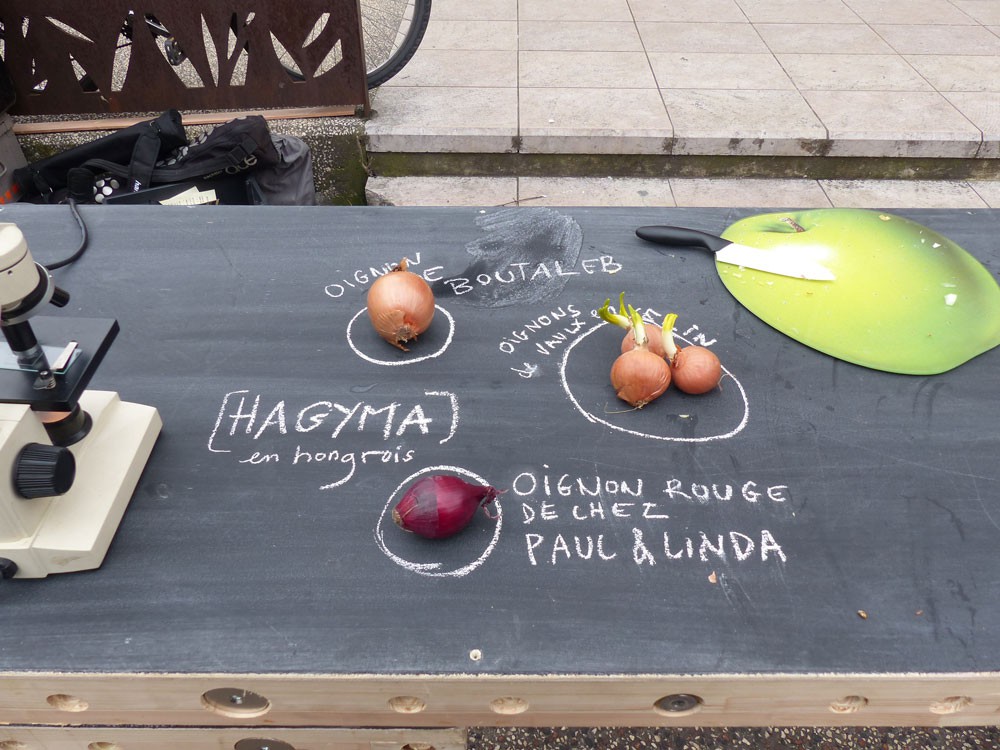 OIGNON
DE BOUTALEB
OIGNONS
de VAULX
[HAGYMA]
en hongrois
OIGNON ROUGE
DE CHEZ
PAUL & LINDA